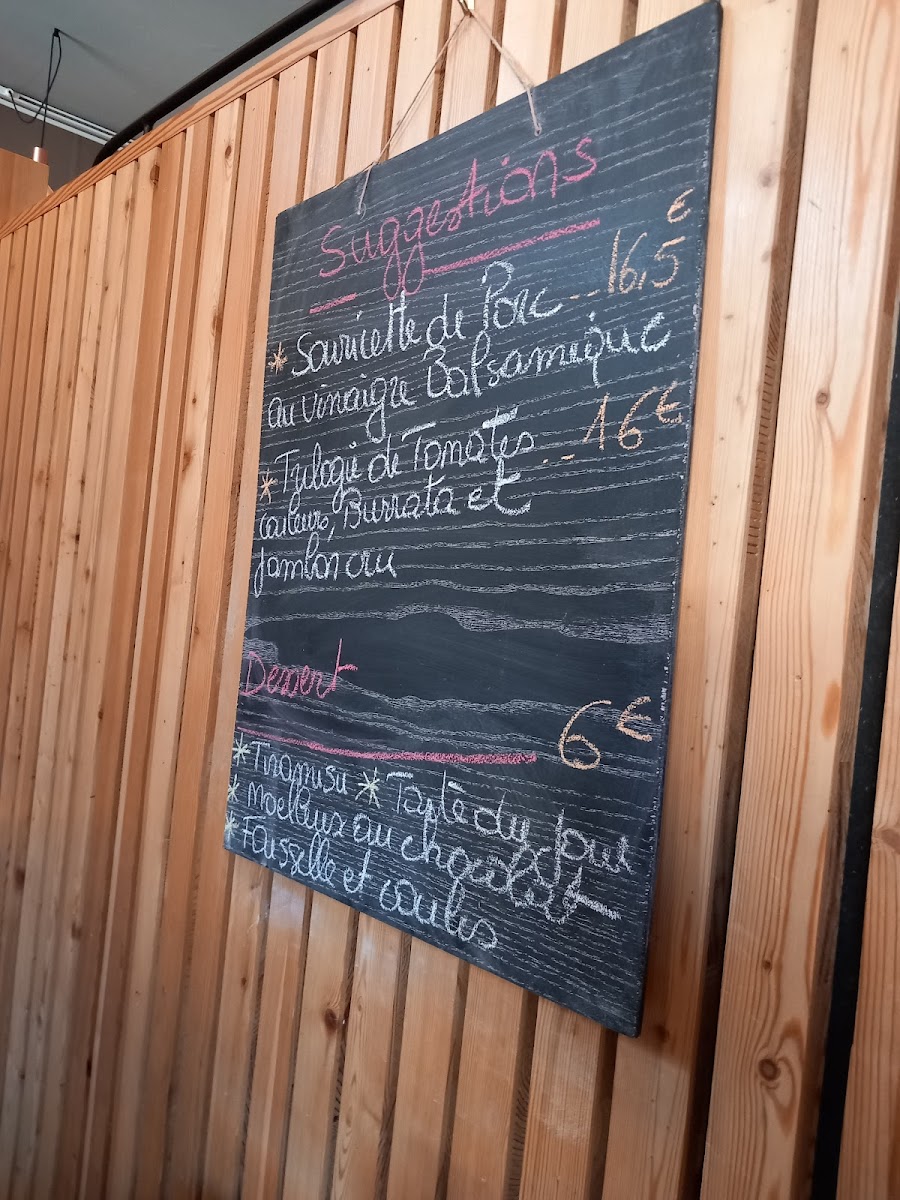 Suggestions
* Souricette de Porc --16,5€
au vinaigre Balsamique
* Trilogie de Tomates --16€
couleurs, Burrata et
jambon cru
Dessert
6€
* Tiramisu * Tarte du jour
* Moelleux au chocolat
* Faisselle et coulis